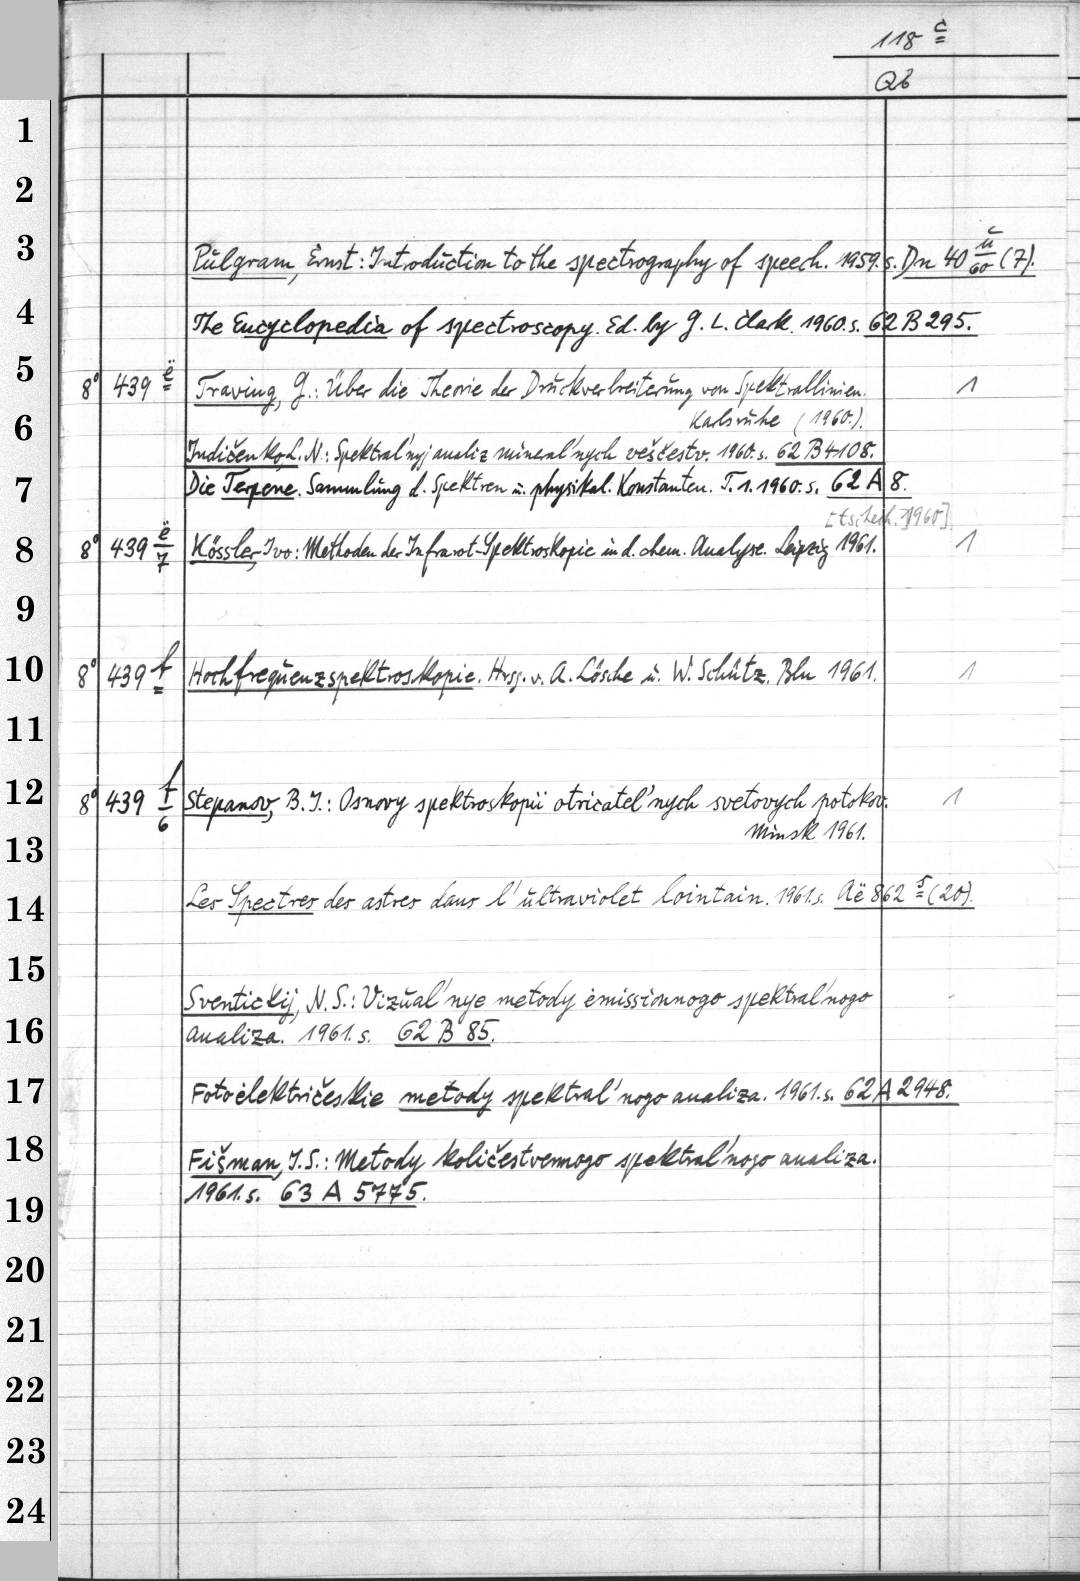 118 c
Qb
1
2
3 Pulgram, Ernst: Introduction to the spectrography of speech. 1959. s. Dn 40 ü/60 (7).
4 The Encyclopedia of spectroscopy. Ed. by G. L. Clark. 1960. s. 62 B 295.
5 8° 439 ë Traving, G.: Über die Theorie der Druckverbreiterung von Spektrallinien. 1
6 Karlsruhe (1960).
Indičenko, L. N.: Spektral'nyj analiz mineral'nych veščestv. 1960. s. 62 B 4108.
7 Die Terpene. Sammlung d. Spektren u. physikal. Konstanten. T. 1. 1960. s. 62 A 8.
[tschech. 1960]
8 8° 439 ë/7 Kössler, Ivo: Methoden der Infrarot-Spektroskopie in d. chem. Analyse. Leipzig 1961. 1
9
10 8° 439 f Hochfrequenzspektroskopie. Hrsg. v. A. Lösche u. W. Schütz. Bln 1961. 1
11
12 8° 439 f/6 Stepanov, B. I.: Osnovy spektroskopii otricatel'nych svetovych potokov. 1
13 Minsk 1961.
14 Les Spectres des astres dans l'ultraviolet lointain. 1961. s. Aë 862 s (20).
15
Sventickij, N. S.: Vizual'nye metody ėmissionnogo spektral'nogo
16 analiza. 1961. s. 62 B 85.
17 Fotoėlektričeskie metody spektral'nogo analiza. 1961. s. 62 A 2948.
18 Fišman, I. S.: Metody količestvennogo spektral'nogo analiza.
19 1961. s. 63 A 5775.
20
21
22
23
24